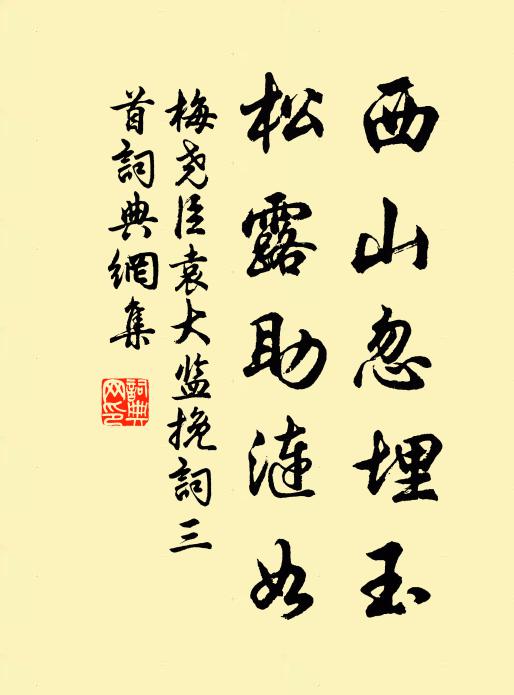 西山忽埋玉
松露助涟如
梅尧臣袁大监挽詞三
首詞典網集
詞典
网印